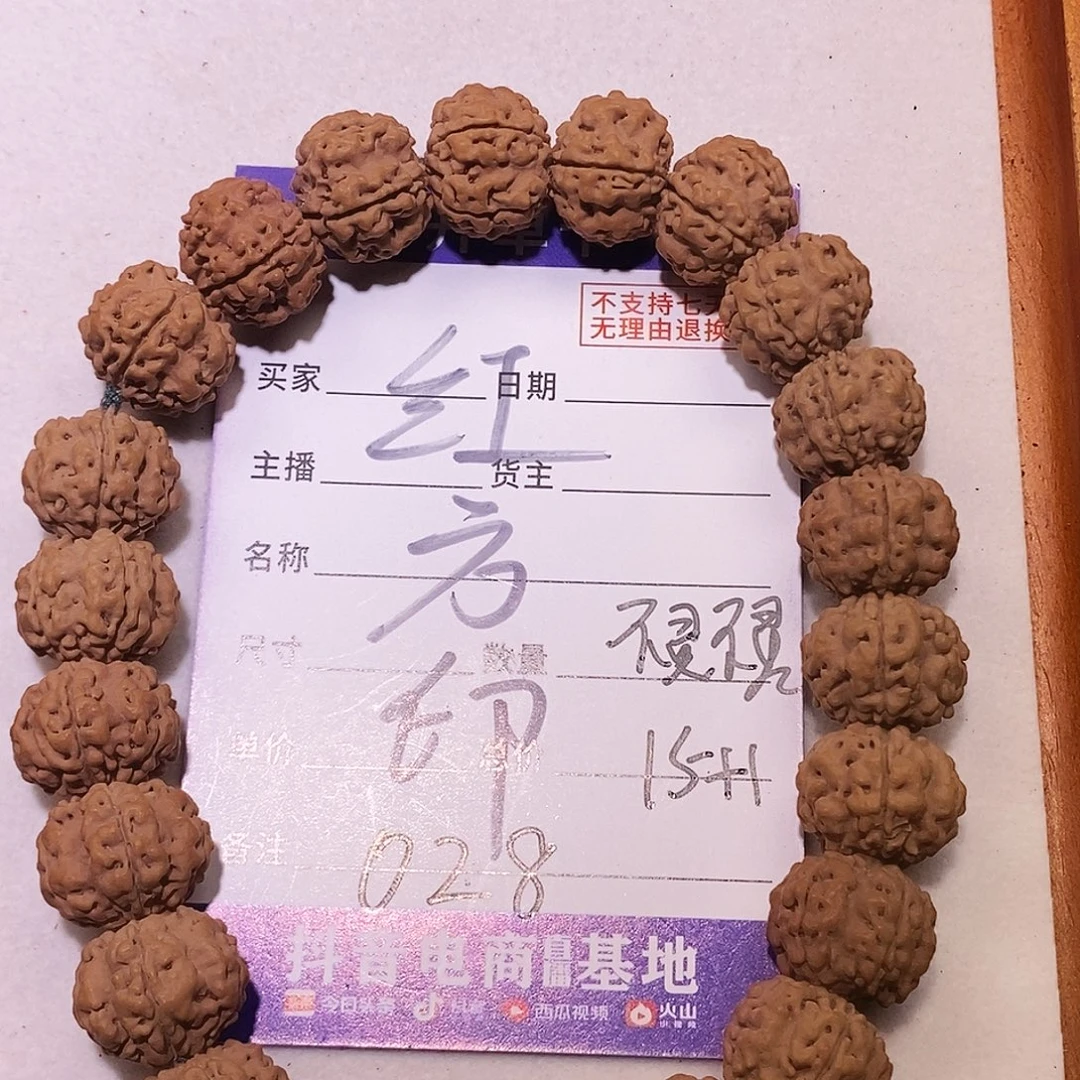 不支持七天
无理由退换
买家 红 日期
主播 货主
名称 方
尺寸 数量
单价 印 总价 15+1
备注 028
抖音电商直播基地
今日头条 抖音 西瓜视频 火山